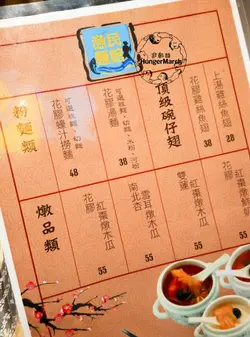 漁民
麵館
HungerMarch
粉麵類
可選粗麵、幼麵
花膠蠔汁撈麵
48
花膠湯麵
38
頂級碗仔翅
花膠雞絲魚翅
38
上湯雞絲魚翅
28
燉品類
花膠
紅棗燉木瓜
55
南北杏
雪耳燉木瓜
55
雙蓮
紅棗燉木瓜
55
花膠
55